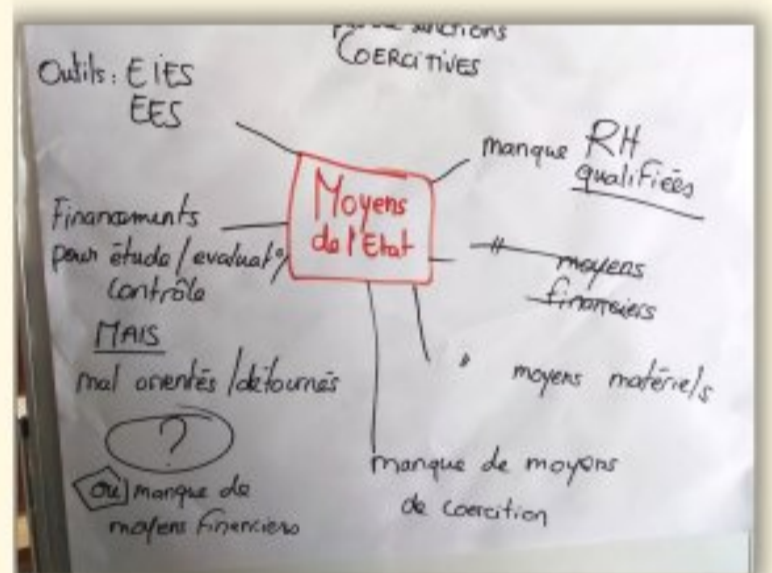 sanctions
COERCITIVES
Outils: EIES
EES
manque RH
qualifiées
Moyens
de l'Etat
Financements
pour étude/evaluat°/
contrôle
MAIS
mal orientés/détournés
?
ou manque de
moyens financiers
" moyens
financiers
" moyens matériels
manque de moyens
de coercition